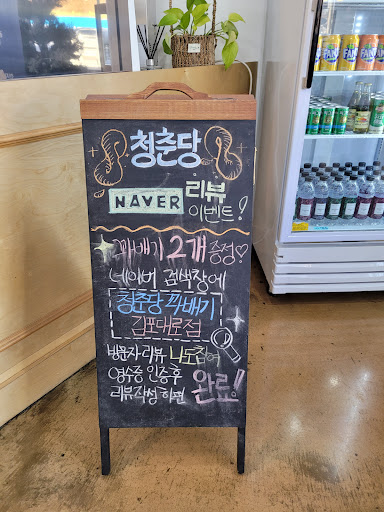 청춘당
NAVER 리뷰
이벤트!
꽈배기 2개 증정♡
네이버 검색창에
청춘당 꽈배기
김포대로점
방문자 리뷰 나도참여
영수증 인증후
리뷰작성 하면 완료!